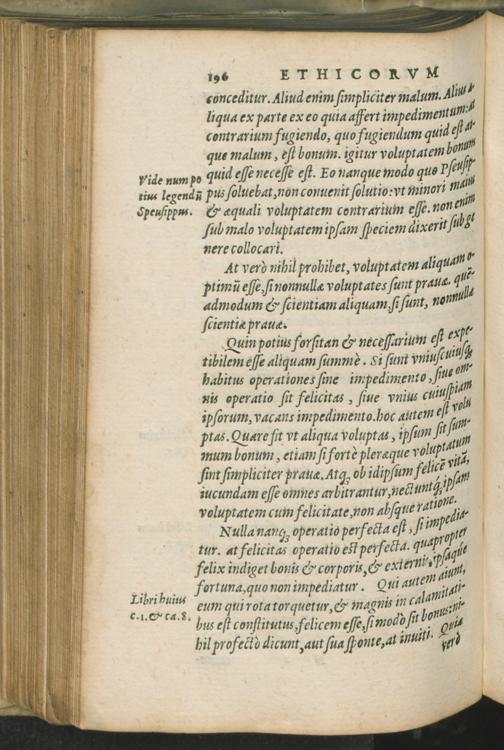 196 ETHICORVM
conceditur. Aliud enim simpliciter malum. Aliud a-
liqua ex parte ex eo quia affert impedimentum: at
contrarium fugiendo, quo fugiendum quid est at-
que malum, est bonum. igitur voluptatem bonum
quid esse necesse est. Eo nanque modo quo Pseusip-
pus soluebat, non conuenit solutio: vt minori maius
& æquali voluptatem contrarium esse. non enim
sub malo voluptatem ipsam speciem dixerit sub ge
nere collocari.
Vide num po
tius legendū
Speusippus.
At verò nihil prohibet, voluptatem aliquam o-
ptimū esse, si nonnullæ voluptates sunt prauæ. quē-
admodum & scientiam aliquam, si sunt, nonnullæ
scientiæ prauæ.
Quin potius forsitan & necessarium est expe-
tibilem esse aliquam summè. Si sunt vniuscuiusq;
habitus operationes sine impedimento, siue om-
nis operatio sit felicitas, siue vnius cuiuspiam
ipsorum, vacans impedimento. hoc autem est volu
ptas. Quare fit vt aliqua voluptas, ipsum sit sum-
mum bonum, etiam si fortè pleræque voluptatum
sint simpliciter prauæ. Atq; ob idipsum felicē vitā,
iucundam esse omnes arbitrantur, nectuntq; ipsam
voluptatem cum felicitate, non absque ratione.
Nulla nanq; operatio perfecta est, si impedia-
tur. at felicitas operatio est perfecta. quapropter
felix indiget bonis & corporis, & externis, ipsaque
fortuna, quo non impediatur. Qui autem aiunt,
eum qui rota torquetur, & magnis in calamitati-
bus est constitutus, felicem esse, si modò sit bonus: ni-
hil profectò dicunt, aut sua sponte, at inuiti. Quia
verò
Libri huius
c. 1. & ca. 8.